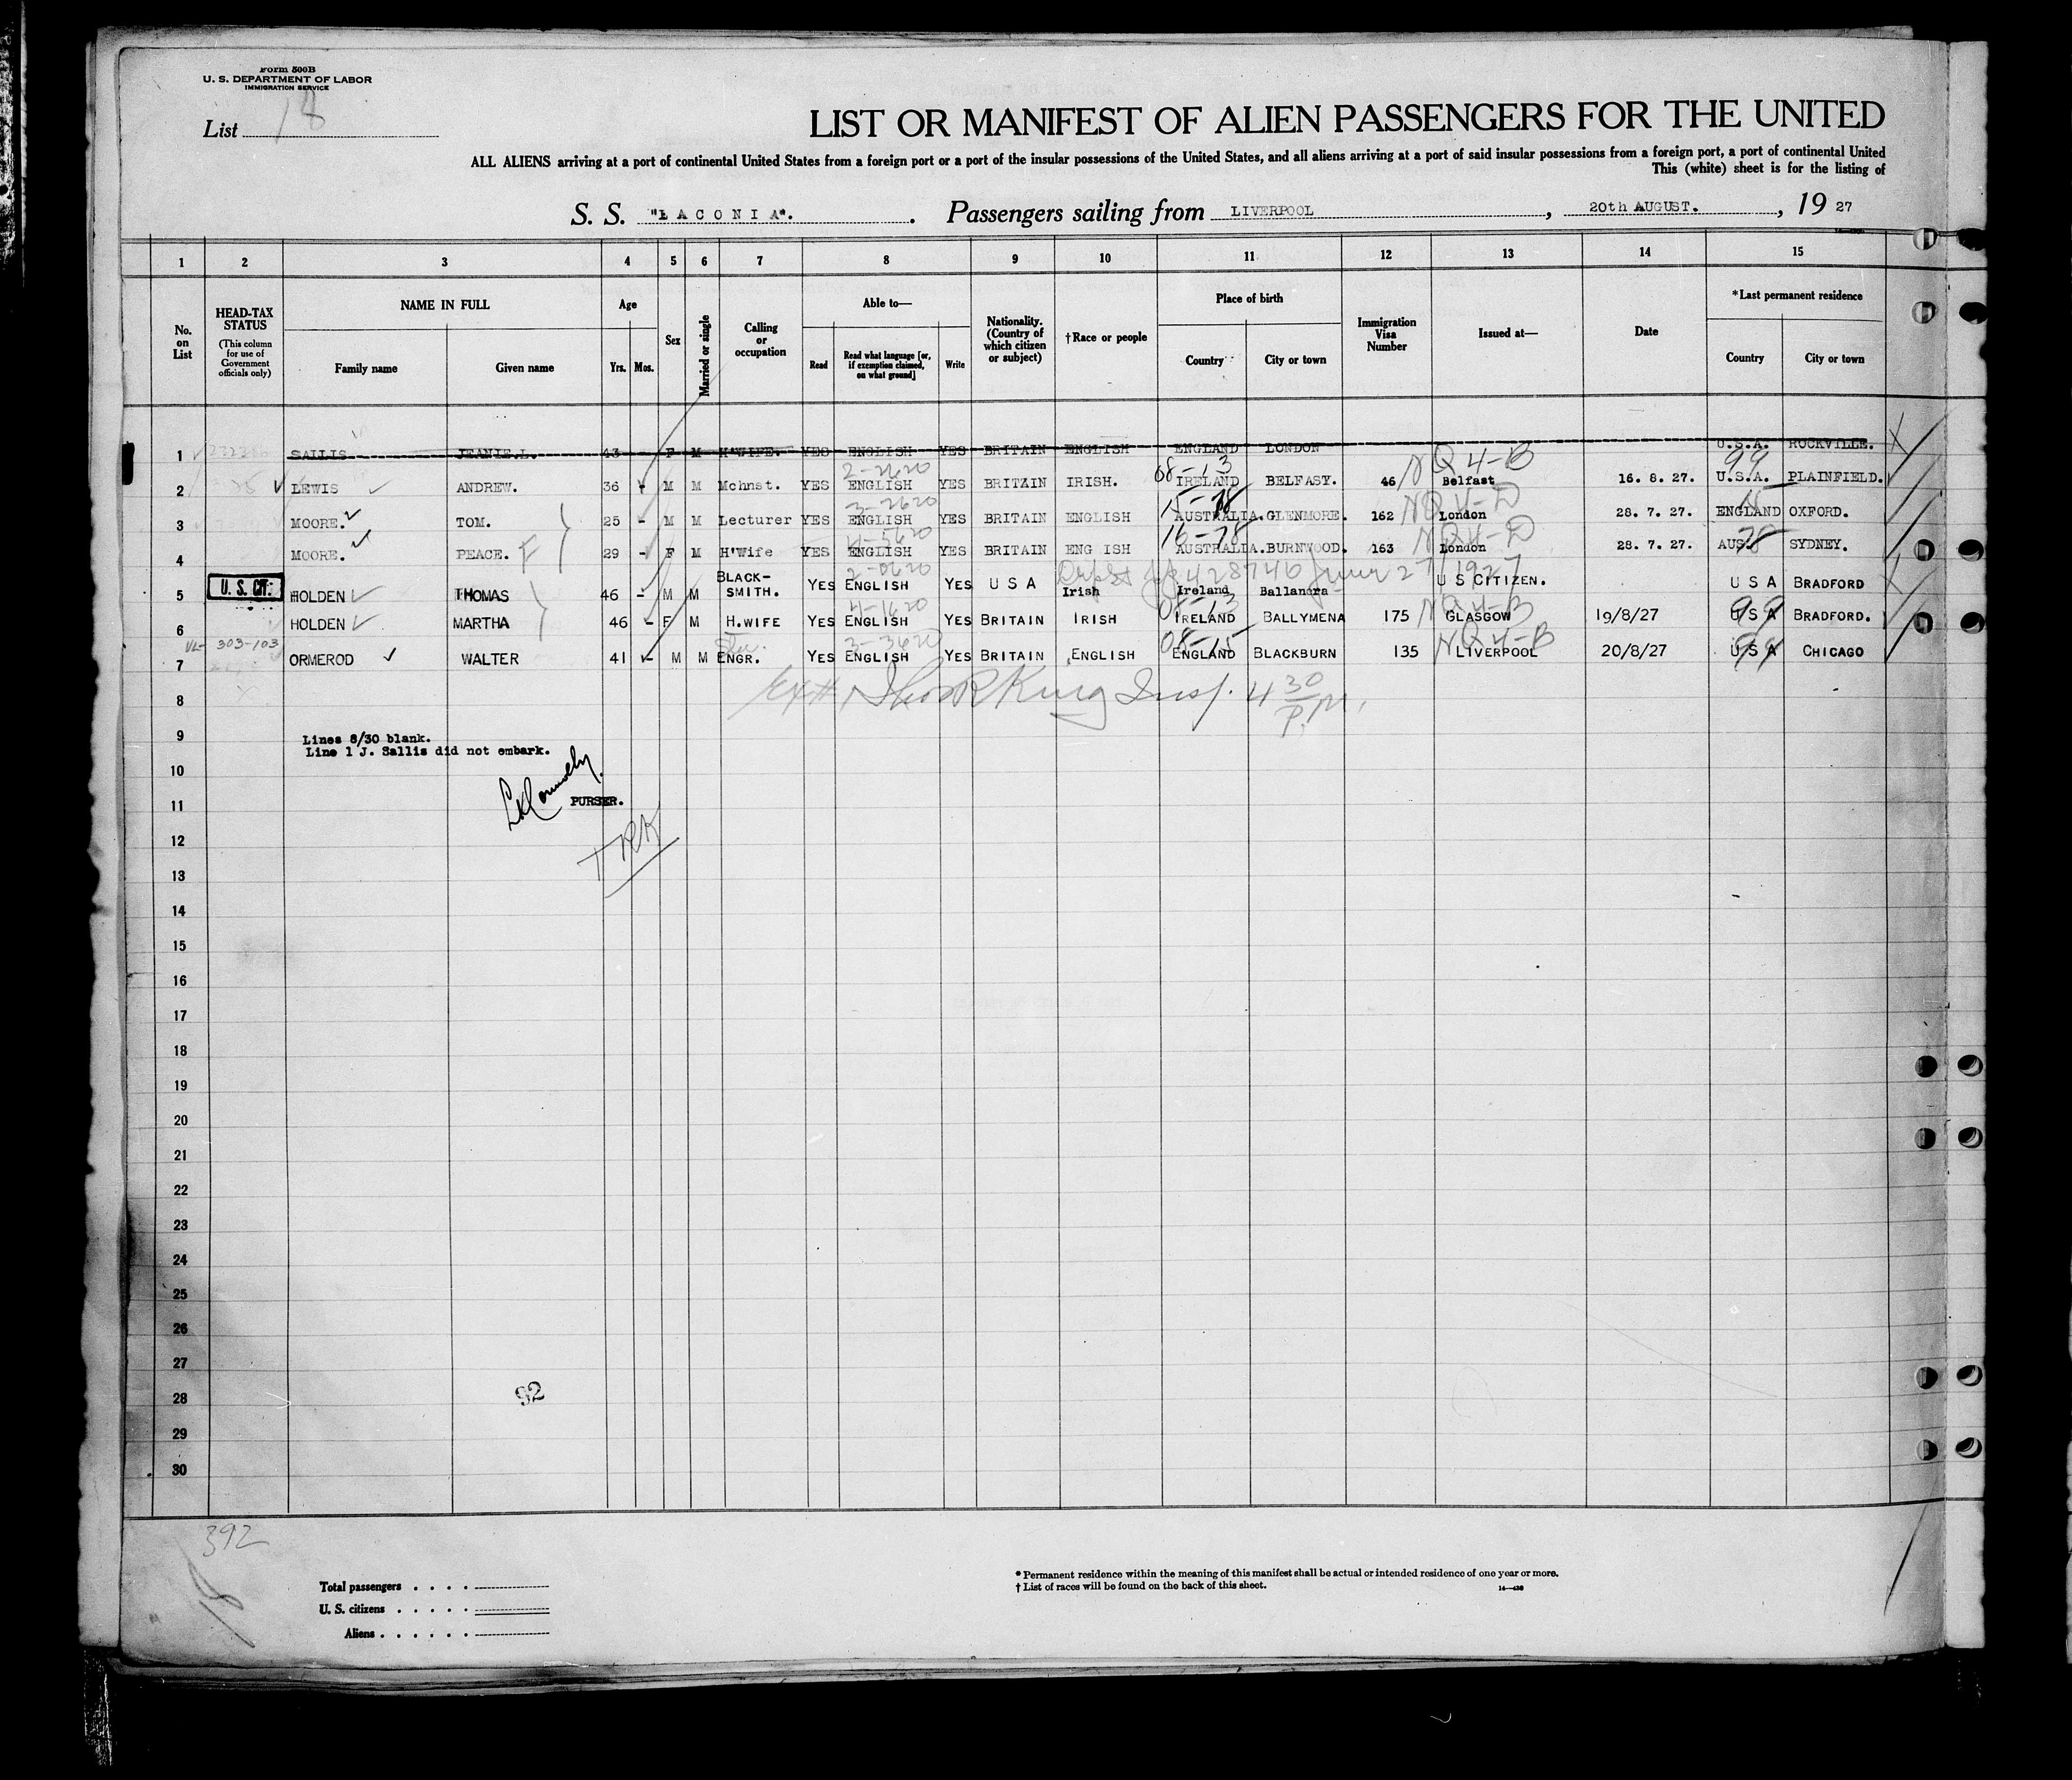 Form 500B
U. S. DEPARTMENT OF LABOR
IMMIGRATION SERVICE
List 18
LIST OR MANIFEST OF ALIEN PASSENGERS FOR THE UNITED
ALL ALIENS arriving at a port of continental United States from a foreign port or a port of the insular possessions of the United States, and all aliens arriving at a port of said insular possessions from a foreign port, a port of continental United
This (white) sheet is for the listing of
S. S. "LACONIA". Passengers sailing from LIVERPOOL, 20th AUGUST., 19 27
1 2 3 4 5 6 7 8 9 10 11 12 13 14 15
No. on List
HEAD-TAX STATUS (This column for use of Government officials only)
NAME IN FULL
Family name Given name
Age
Yrs. Mos.
Sex
Married or single
Calling or occupation
Able to—
Read Read what language [or, if exemption claimed, on what ground] Write
Nationality. (Country of which citizen or subject)
†Race or people
Place of birth
Country City or town
Immigration Visa Number
Issued at—
Date
*Last permanent residence
Country City or town
1 SALLIS JEANIE.L. 43 F M H'WIFE. YES ENGLISH YES BRITAIN ENGLISH ENGLAND LONDON U.S.A. ROCKVILLE.
2-2620 08-13 NQ 4-B 99
2 LEWIS ANDREW. 36 - M M Mchnst. YES ENGLISH YES BRITAIN IRISH. IRELAND BELFASY. 46 Belfast 16. 8. 27. U.S.A. PLAINFIELD.
3-2620 15-78 NQ 4-D
3 MOORE. TOM. 25 - M M Lecturer YES ENGLISH YES BRITAIN ENGLISH AUSTRALIA. GLENMORE. 162 London 28. 7. 27. ENGLAND OXFORD.
4-5620 16-78 NQ 4-D 78
4 MOORE. PEACE. F 29 - F M H'Wife YES ENGLISH YES BRITAIN ENG ISH AUSTRALIA. BURNWOOD. 163 London 28. 7. 27. AUS. SYDNEY.
2-0620 428746 June 27/1927
U. S. CIT:
5 HOLDEN THOMAS 46 - M M BLACK-SMITH. YES ENGLISH YES U S A Irish Ireland Ballanora U S CITIZEN. U S A BRADFORD
4-1620 08-13 NQ 4-B 99
6 HOLDEN MARTHA 46 - F M H.WIFE YES ENGLISH YES BRITAIN IRISH IRELAND BALLYMENA 175 GLASGOW 19/8/27 U S A BRADFORD.
303-103 3-3620 08-15 NQ 4-B 99
7 ORMEROD WALTER 41 - M M ENGR. YES ENGLISH YES BRITAIN ENGLISH ENGLAND BLACKBURN 135 LIVERPOOL 20/8/27 U S A CHICAGO
8 King Insp. 4 30 P.M.
9 Lines 8/30 blank.
Line 1 J. Sallis did not embark.
10
11 PURSER.
12 TRK
13
14
15
16
17
18
19
20
21
22
23
24
25
26
27
28 92
29
30
392
18
Total passengers
U. S. citizens
Aliens
* Permanent residence within the meaning of this manifest shall be actual or intended residence of one year or more.
† List of races will be found on the back of this sheet.